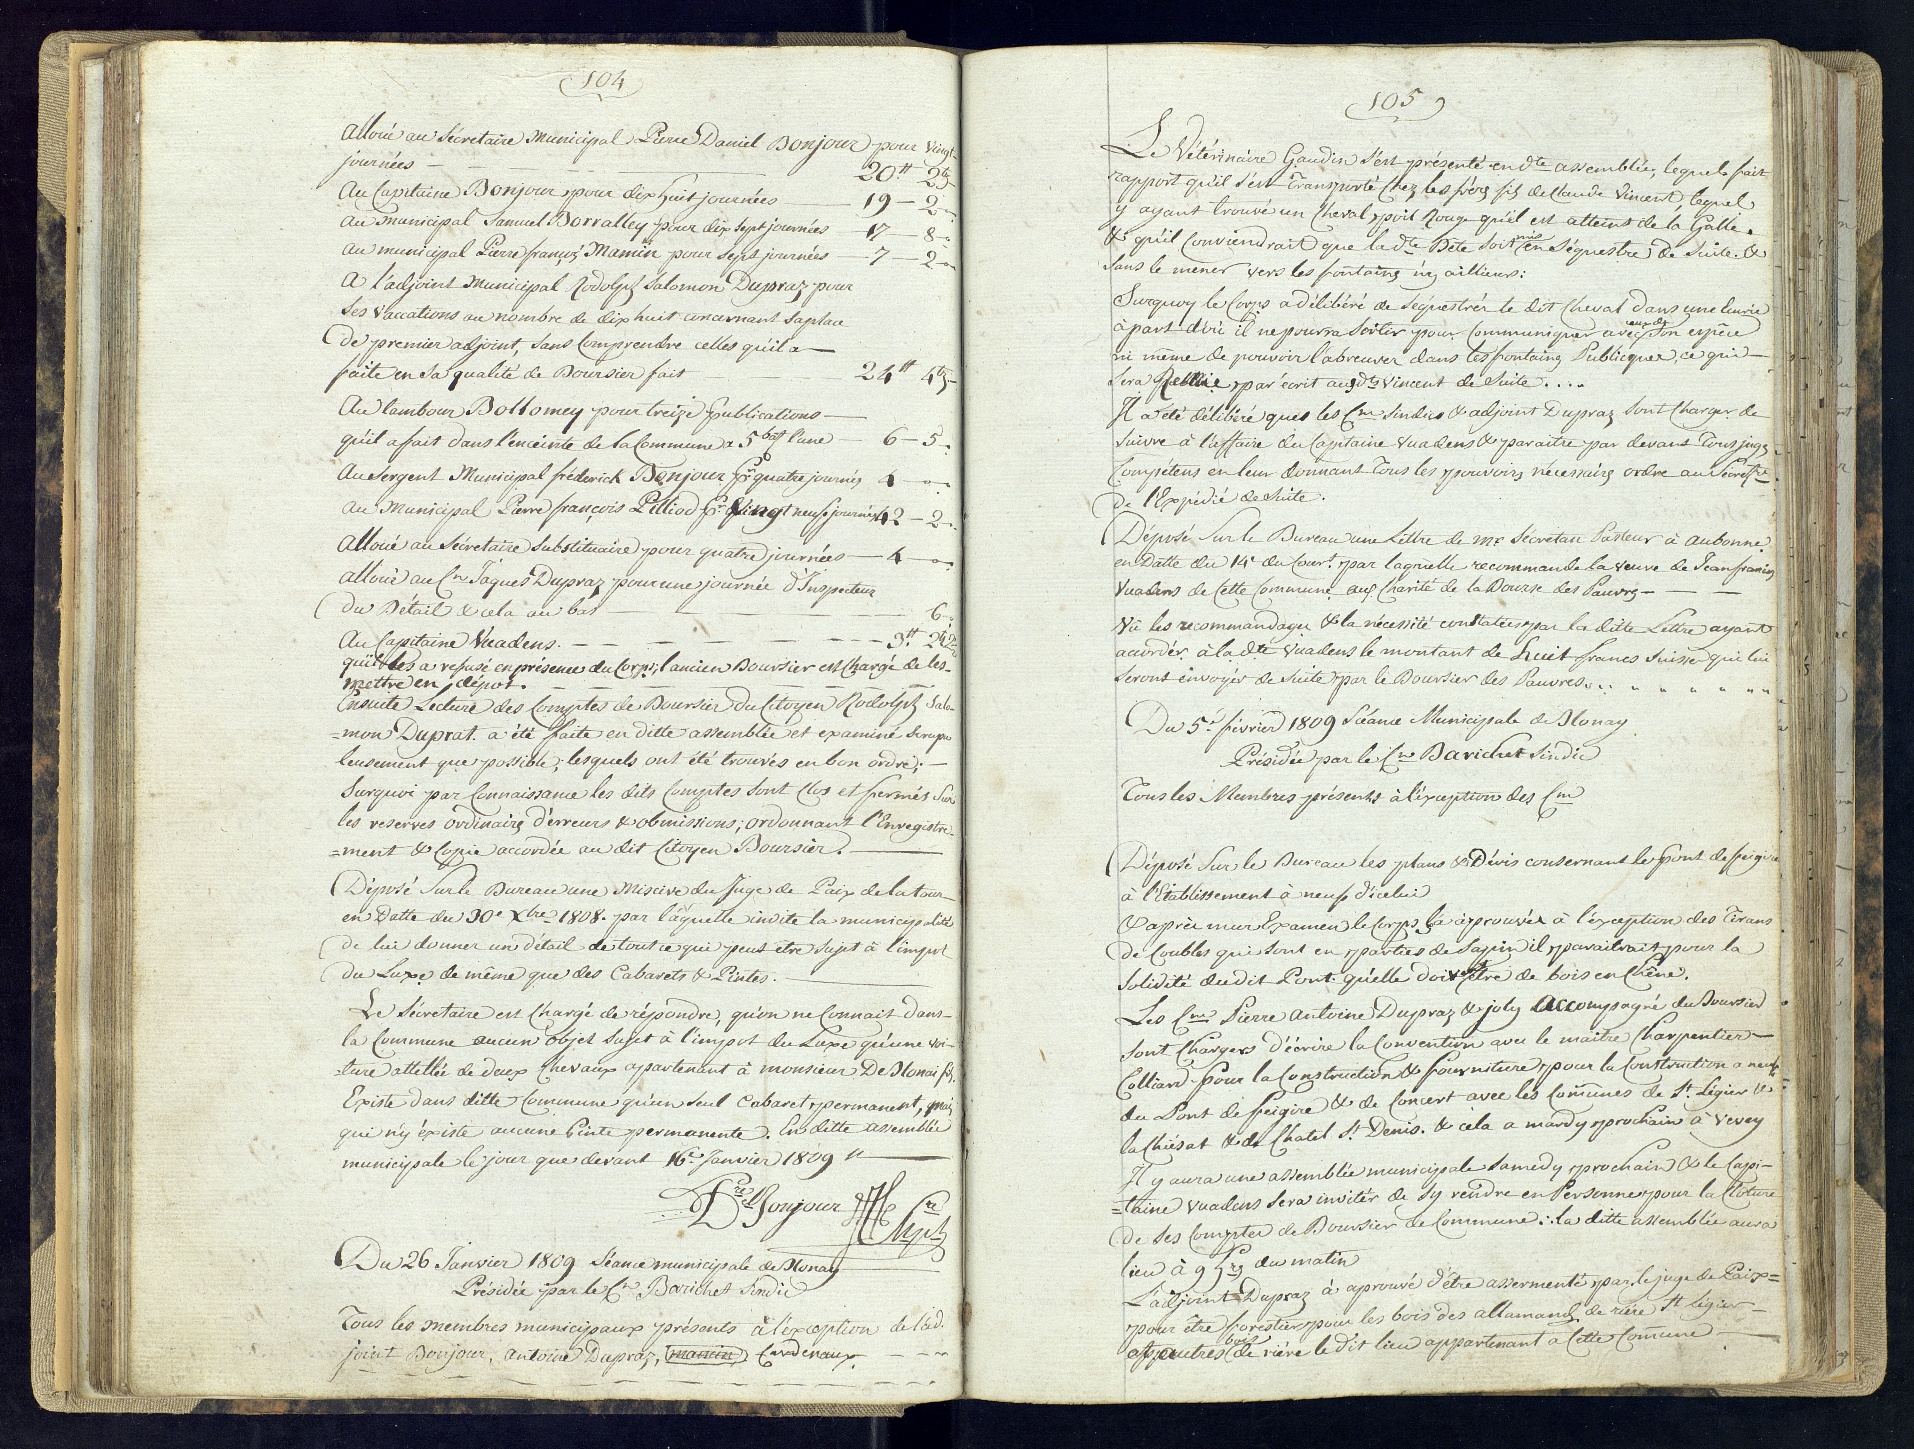 104
Alloué au Sécretaire Municipal Pierre Daniel Bonjour pour vingt
journées — 20 tt 2
Au Capitaine Bonjour pour dix huit journées — 19 — 2
au municipal Samuel Borralley pour dix sept journées — 17 — 8
au municipal Pierre françoi Mamin pour sept journées — 7 — 2
A l'adjoint Municipal Rodolph Salomon Dupraz pour
ses vaccations au nombre de dix huit concernant sa place
de premier adjoint, sans Comprendre celles qu'il a —
faite en sa qualité de Boursier fait — 24 tt 4
Au tambour Bottomey pour treize publications —
qu'il a fait dans l'enceinte de la Commune a 5 bat l'une — 6 — 5
Au Sergent Municipal fréderick Bonjour pr quatre journés 4 —
au Municipal Pierre françois Pilliod pr vingt neuf journées 42 — 2
Alloué au Sécretaire Substituaire pour quatre journées — 4 —
alloué au Cn Jaques Dupraz pour une journée d'Inspecteur
du Bétail & cela au bas — 6
Au Capitaine Vuadens. — 3 tt
qu'il les a refusé en présence du Corps; l'ancien Boursier est Chargé de les
mettre en dépot.
Ensuite Lecture des Comptes de Boursier du Citoyen Rodolph Salo-
=mon Duprat. a été faite en ditte assemblée et examiné Scrupu
leusement que possible, lesquels ont été trouvés en bon ordre; —
Surquoi par Connaissance les dits Comptes sont Clos et fermés Sur
les reserves ordinairs d'érreurs & obmissions; ordonnant l'Enregistre-
=ment & Copie accordée au dit Citoyen Boursier. —
Déposé Sur le Bureau une Missive du Juge de Paix de la tour
en Datte du 30e Xbre 1808. par laquelle invite la municipalité
de lui donner un détail de tout ce qui peut être sujet à l'impot
du Luxe de même que des Cabarets & Pintes. —
Le Sécretaire est Chargé de répondre, qu'on ne Connait dans —
la Commune aucun objet Sujet à l'impot du Luxe qu'une voi-
-ture attellée de deux Chevaux appartenant à monsieur De Blonai fs.
Existe dans ditte Commune qu'un seul Cabaret permanent, mais
qui n'y existe aucune Pinte permanente. En ditte assemblée
municipale le jour que devant 16e Janvier 1809 "
Pre Dl Bonjour Sre
Du 26 Janvier 1809 Séance municipale de Blonay
Présidée par le Cn Barichet Sindic
Tous les membres municipaux présents à l'éxception de l'ad-
joint Bonjour, Antoine Dupraz, mamin Cardenaux.
105
Le Vétérinaire Gaudin s'est présenté en dte assemblée, lequel fait
rapport qu'il s'est Transporté Chez les fréres fils de Claude Vincent, lequel
y ayant trouvé un Cheval poil Rouge qu'il est atteint de la Galle.
& qu'il Conviendrait que la dte Bête soit mis en Séquestre de Suite &
sans le mener vers les fontains ni ailleurs:
Surquoy le Corps a délibéré de séquestrér le dit Cheval dans une Ecurie
à part d'où il ne pourra Sortir pour Communiquer avec ceux de son espèce
ni même de pouvoir l'abreuver dans les fontains Publiques, ce qui —
sera par écrit aux dts Vincent de Suite....
Il a été délibéré ques les Cns Sindic & adjoint Dupraz Sont Charger de
suivre à l'affaire du Capitaine Vuadens & paraitre par devant Tous juges
Compétens en leur donnant Tous les pouvoirs nécessairs ordre au Sécretre
de l'Expédié de Suite.
Déposé Sur le Bureau une Lettre de Mr Sécretan Pasteur à aubonne
en Datte du 14e du Court. par laquelle recommande la veuve de Jean francois
Vuadens de Cette Commune aux Charité de la Bourse des Pauvres — —
Vû les recommandages & la nécessité constatée par la ditte Lettre ayant
accordér à la dte Vuadens le montant de huit francs Suisse qui lui
seront envoyér de Suite par le Boursier des Pauvres.
Du 5e février 1809 Séance Municipale de Blonay
Présidée par le Cn Barichet Sindic
Tous les Membres présents à l'éxception des Cns
Déposé Sur le Bureau les plans & Dévis consernant le Pont de feigire
à l'Etablissement à neuf d'icelui
& après mur Examen le Corps l'a àprouvée à l'éxception des Tirans
de Coubles qui sont en parties de Sapin il paraitrait pour la
solidité du dit Pont qu'elle doivent être de bois en Chêne.
Les Cns Pierre Antoine Dupraz & joly Accompagné du Boursier
sont Chargers d'écrire la Convention avec le maitre Charpentier —
Colliard pour la Construction & fourniture pour la Construction a neuf
du Pont de feigire & de Concert avec les Comunes de St. Légier &
la Chiésat & de Chatel St. Denis. & céla a mardy prochain à Vevey
Il y aura une assemblée municipale Samedy prochain & le Capi-
=taine Vuadens Sera invitér de sy rendre en Personne pour la Cloture
de ses Compter de Boursier de Commune.:. la ditte assemblée aura
lieu à 9 hrs du matin
L'adjoint Dupraz à aprouvé d'être assermenté par le juge de Paix=
pour être forestier pour les bois des allamands de riére St Légier —
autres bois de riére le dit lieu appartenant a Cette Comune —